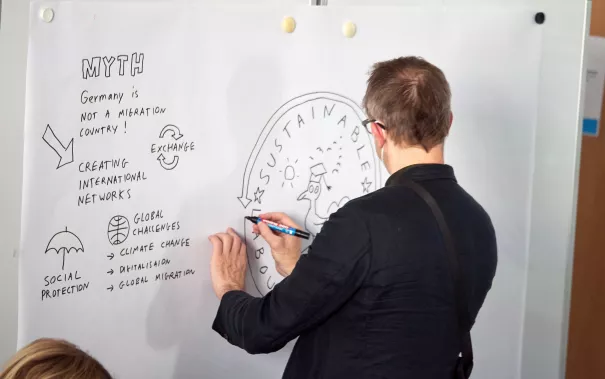 MYTH
Germany is
NOT A MIGRATION
COUNTRY!
EXCHANGE
CREATING
INTERNATIONAL
NETWORKS
GLOBAL
CHALLENGES
→ CLIMATE CHANGE
→ DIGITALISATION
→ GLOBAL MIGRATION
SOCIAL
PROTECTION
SUSTAINABLE